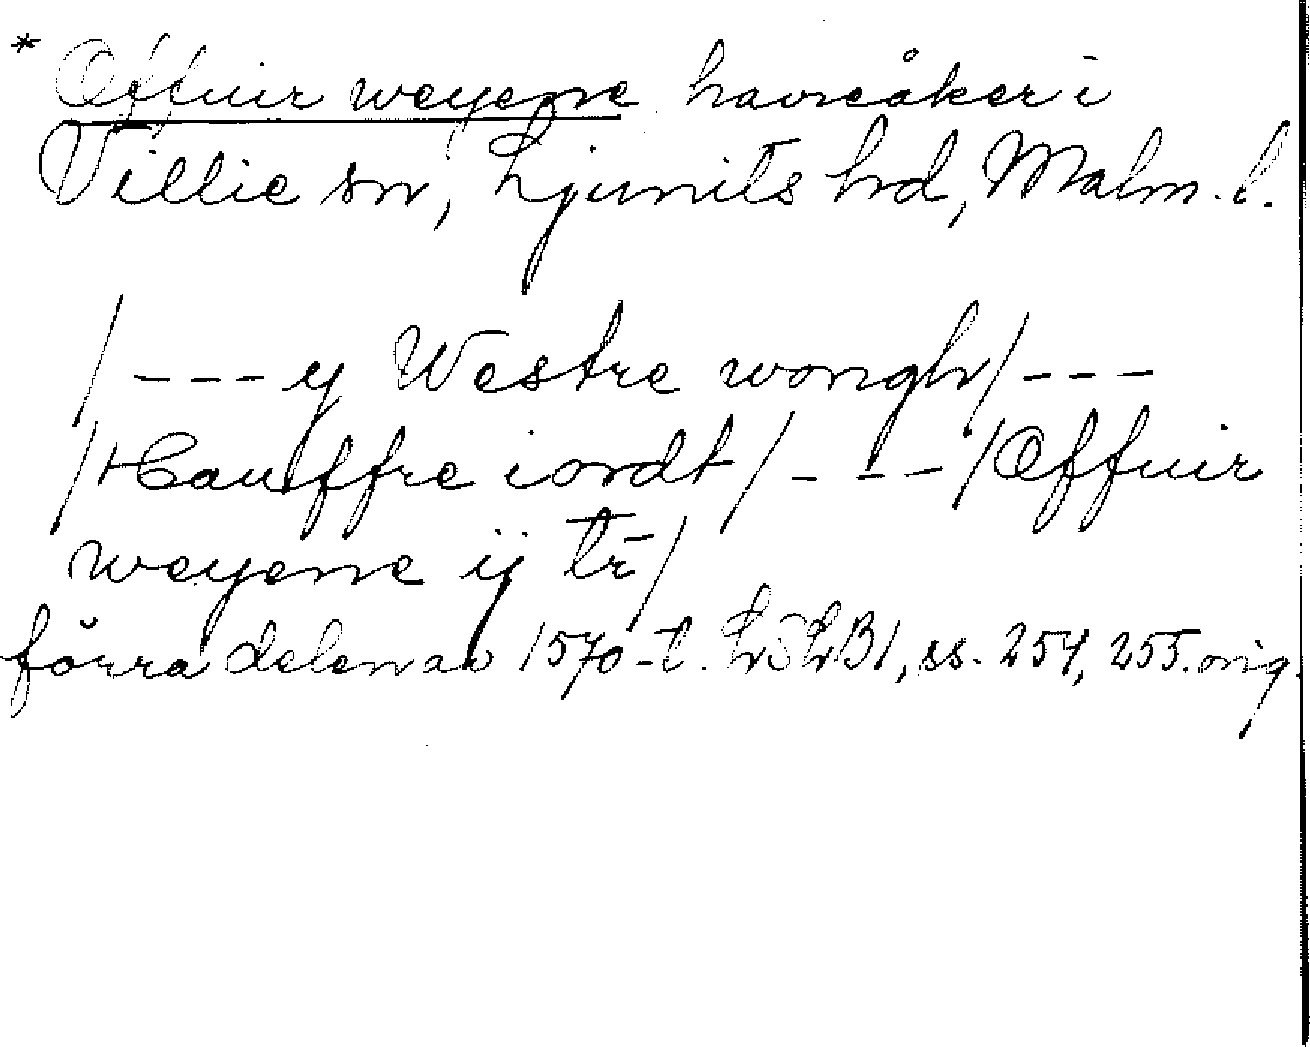 * Offuir weyene havreåker i
Villie sn, Ljunits hd, Malm. l.
/--- y Westre wongh/ ---
/Hauffre iordt/ --- /Offuir
weyene ij tr̄/
förra delen av 1570-t. LSLB1, ss. 254, 255. orig.